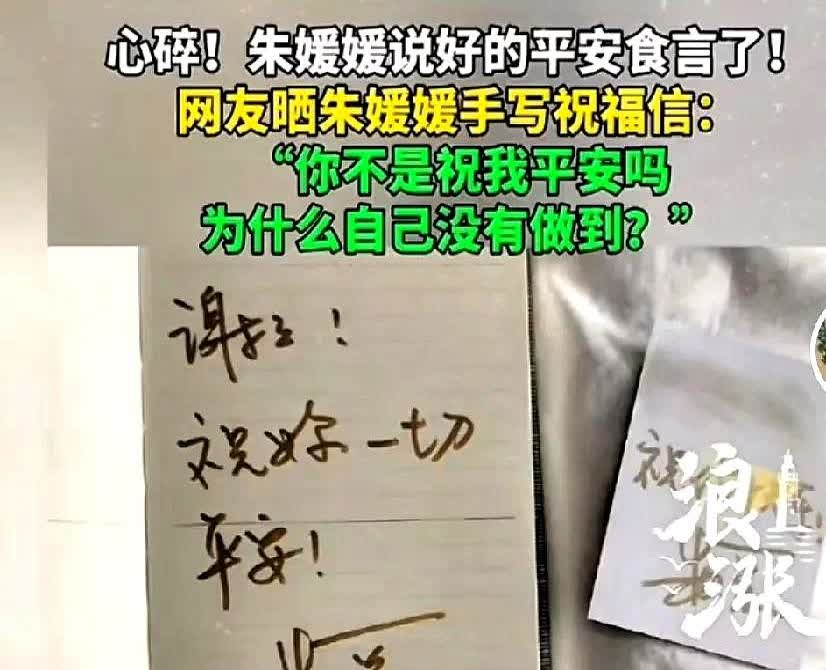 心碎！朱媛媛说好的平安食言了！
网友晒朱媛媛手写祝福信：
“你不是祝我平安吗
为什么自己没有做到？”
谢谢！
祝妳一切
平安！
祝
浪上
涨